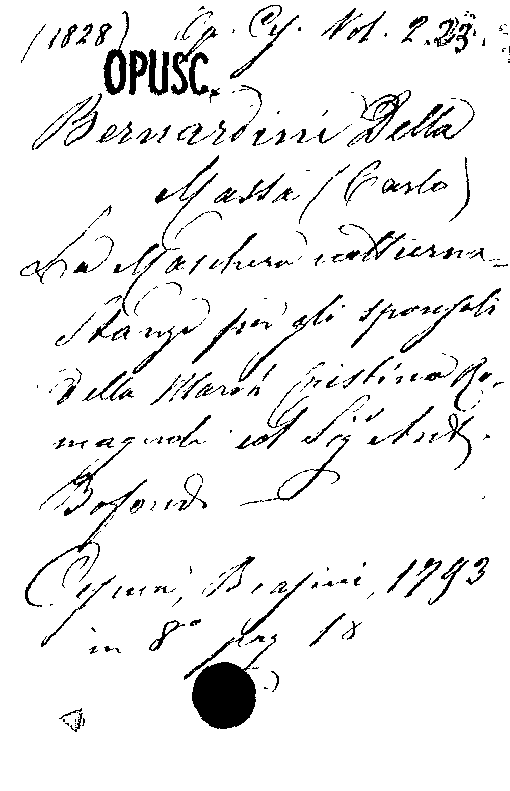 (1828) Op. Cy. Vol. 2.23.
OPUSC.
Bernardini Della
Massa (Carlo)
La Maschera notturna
Stanze per gli sponsali
Della March Cristina Ro-
magnoli col Sig Ant
Bofondi
Cesena, Biasini, 1793
in 8° pag 18